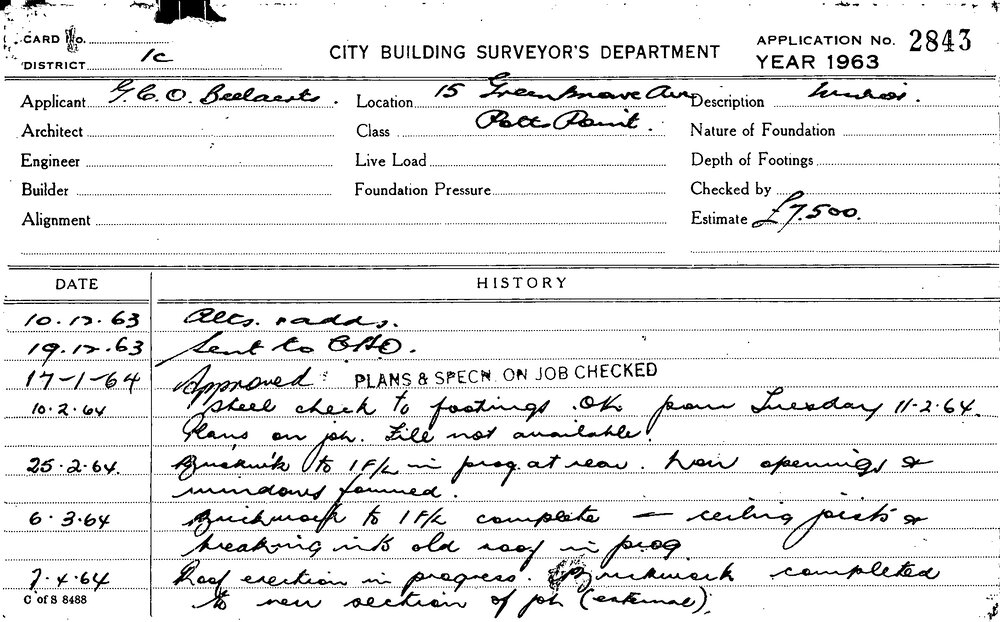 CARD No.
DISTRICT 1C
CITY BUILDING SURVEYOR'S DEPARTMENT
APPLICATION No. 2843
YEAR 1963
Applicant G.C.O. Beelaerts. Location 15 Greenknowe Ave Description
Architect Class Potts Point. Nature of Foundation
Engineer Live Load Depth of Footings
Builder Foundation Pressure Checked by
Alignment Estimate £7,500.
DATE HISTORY
10.12.63 Alts. & adds.
19.12.63 Sent to CHO.
17-1-64 Approved PLANS & SPECN. ON JOB CHECKED
10.2.64 Steel check to footings. OK pour Tuesday 11-2-64.
Plans on job. File not available.
25.2.64. Brickwk to 1 F/L in prog. at rear. New openings &
windows formed.
6.3.64 Brickwork to 1 F/L complete — ceiling joists &
breaking into old roof in prog.
7.4.64 Roof erection in progress. Brickwork completed
to new section of job (external).
C of S 8488